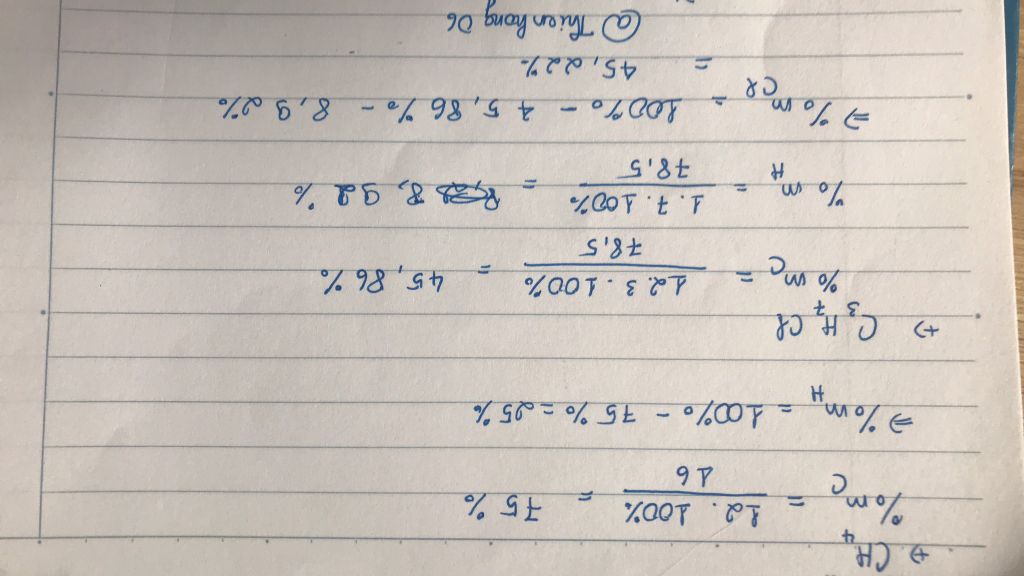 +) CH4
%mC = 12 . 100% / 16 = 75%
=> %mH = 100% - 75% = 25%
+) C3H7Cl
%mC = 12.3.100% / 78,5 = 45,86%
%mH = 1.7.100% / 78,5 = 8,92%
=> %mCl = 100% - 45,86% - 8,92%
= 45,22%
@ Thienhong06